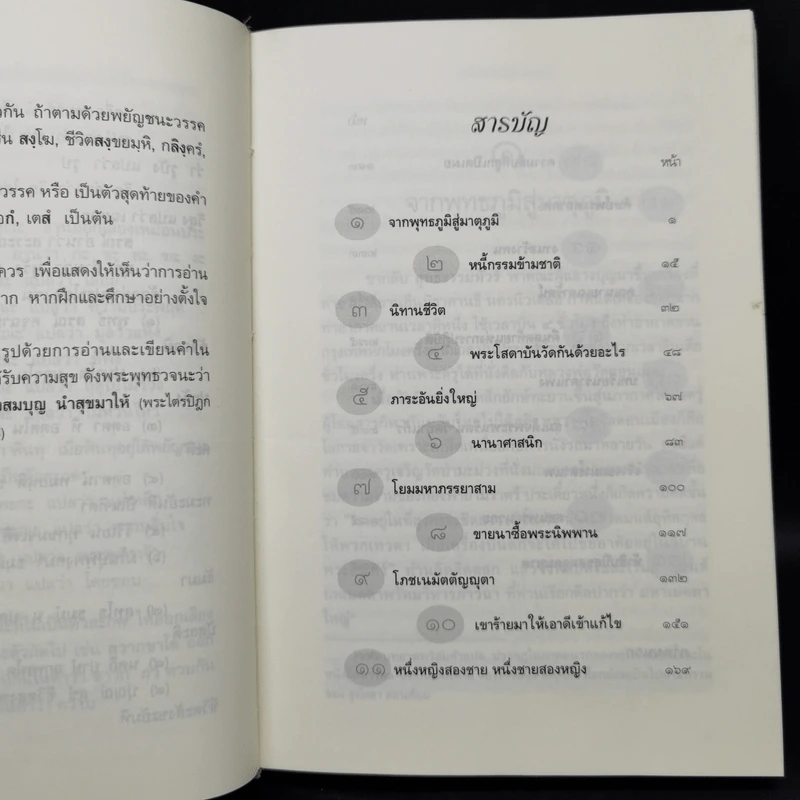 กัน ถ้าตามด้วยพยัญชนะวรรค
สงฺโฆ, ชีวิตสงฺขยมฺหิ, กลิงฺครํ,
วรรค หรือ เป็นตัวสุดท้ายของคำ
เตสํ เป็นต้น
ควร เพื่อแสดงให้เห็นว่าการอ่าน
หากฝึกและศึกษาอย่างตั้งใจ
รูปด้วยการอ่านและเขียนคำใน
รับความสุข ดังพระพุทธวจนะว่า
สมบุญ นำสุขมาให้ (พระไตรปิฎก
สารบัญ
หน้า
๑ จากพุทธภูมิสู่มาตุภูมิ ๑
๒ หนี้กรรมข้ามชาติ ๑๕
๓ นิทานชีวิต ๓๒
๔ พระโสดาบันวัดกันด้วยอะไร ๔๘
๕ ภาระอันยิ่งใหญ่ ๖๗
๖ นานาศาสนิก ๘๓
๗ โยมมหาภรรยาสาม ๑๐๐
๘ ขายนาซื้อพระนิพพาน ๑๑๗
๙ โภชเนมัตตัญญุตา ๑๓๒
๑๐ เขาร้ายมาให้เอาดีเข้าแก้ไข ๑๕๑
๑๑ หนึ่งหญิงสองชาย หนึ่งชายสองหญิง ๑๖๙